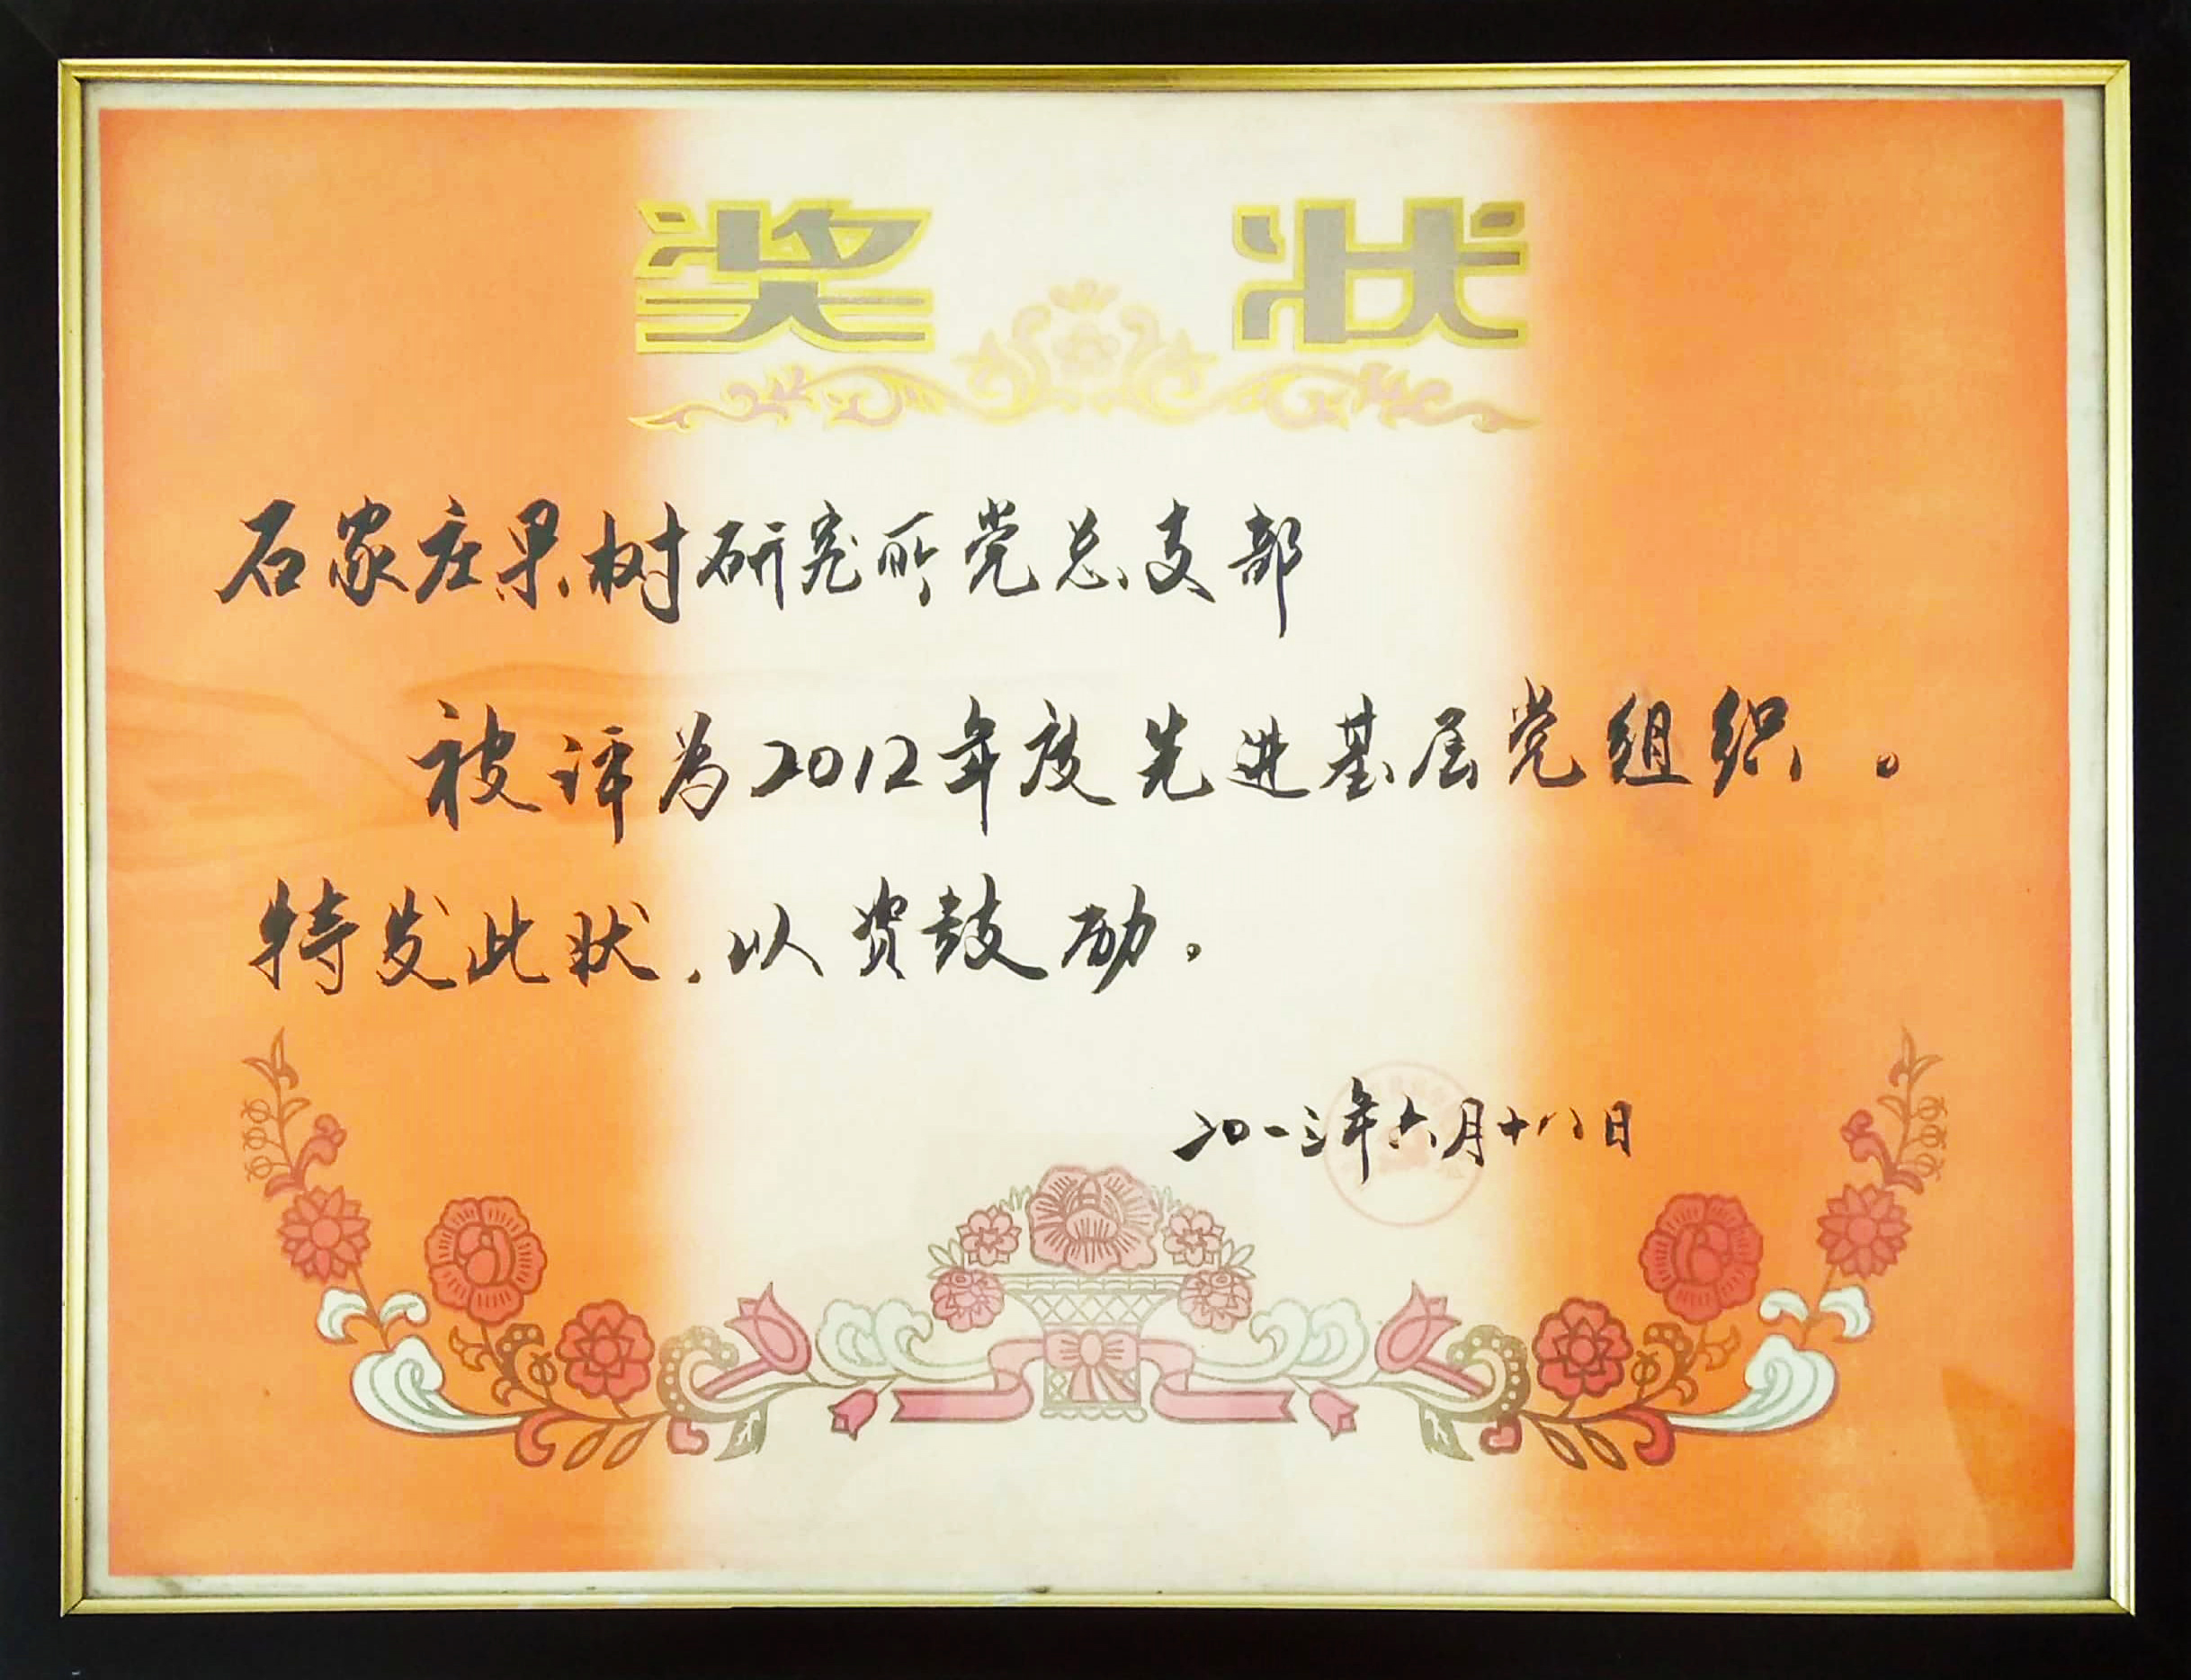 奖状
石家庄果树研究所党总支部
被评为2012年度先进基层党组织。
特发此状，以资鼓励。
二〇一三年六月十八日